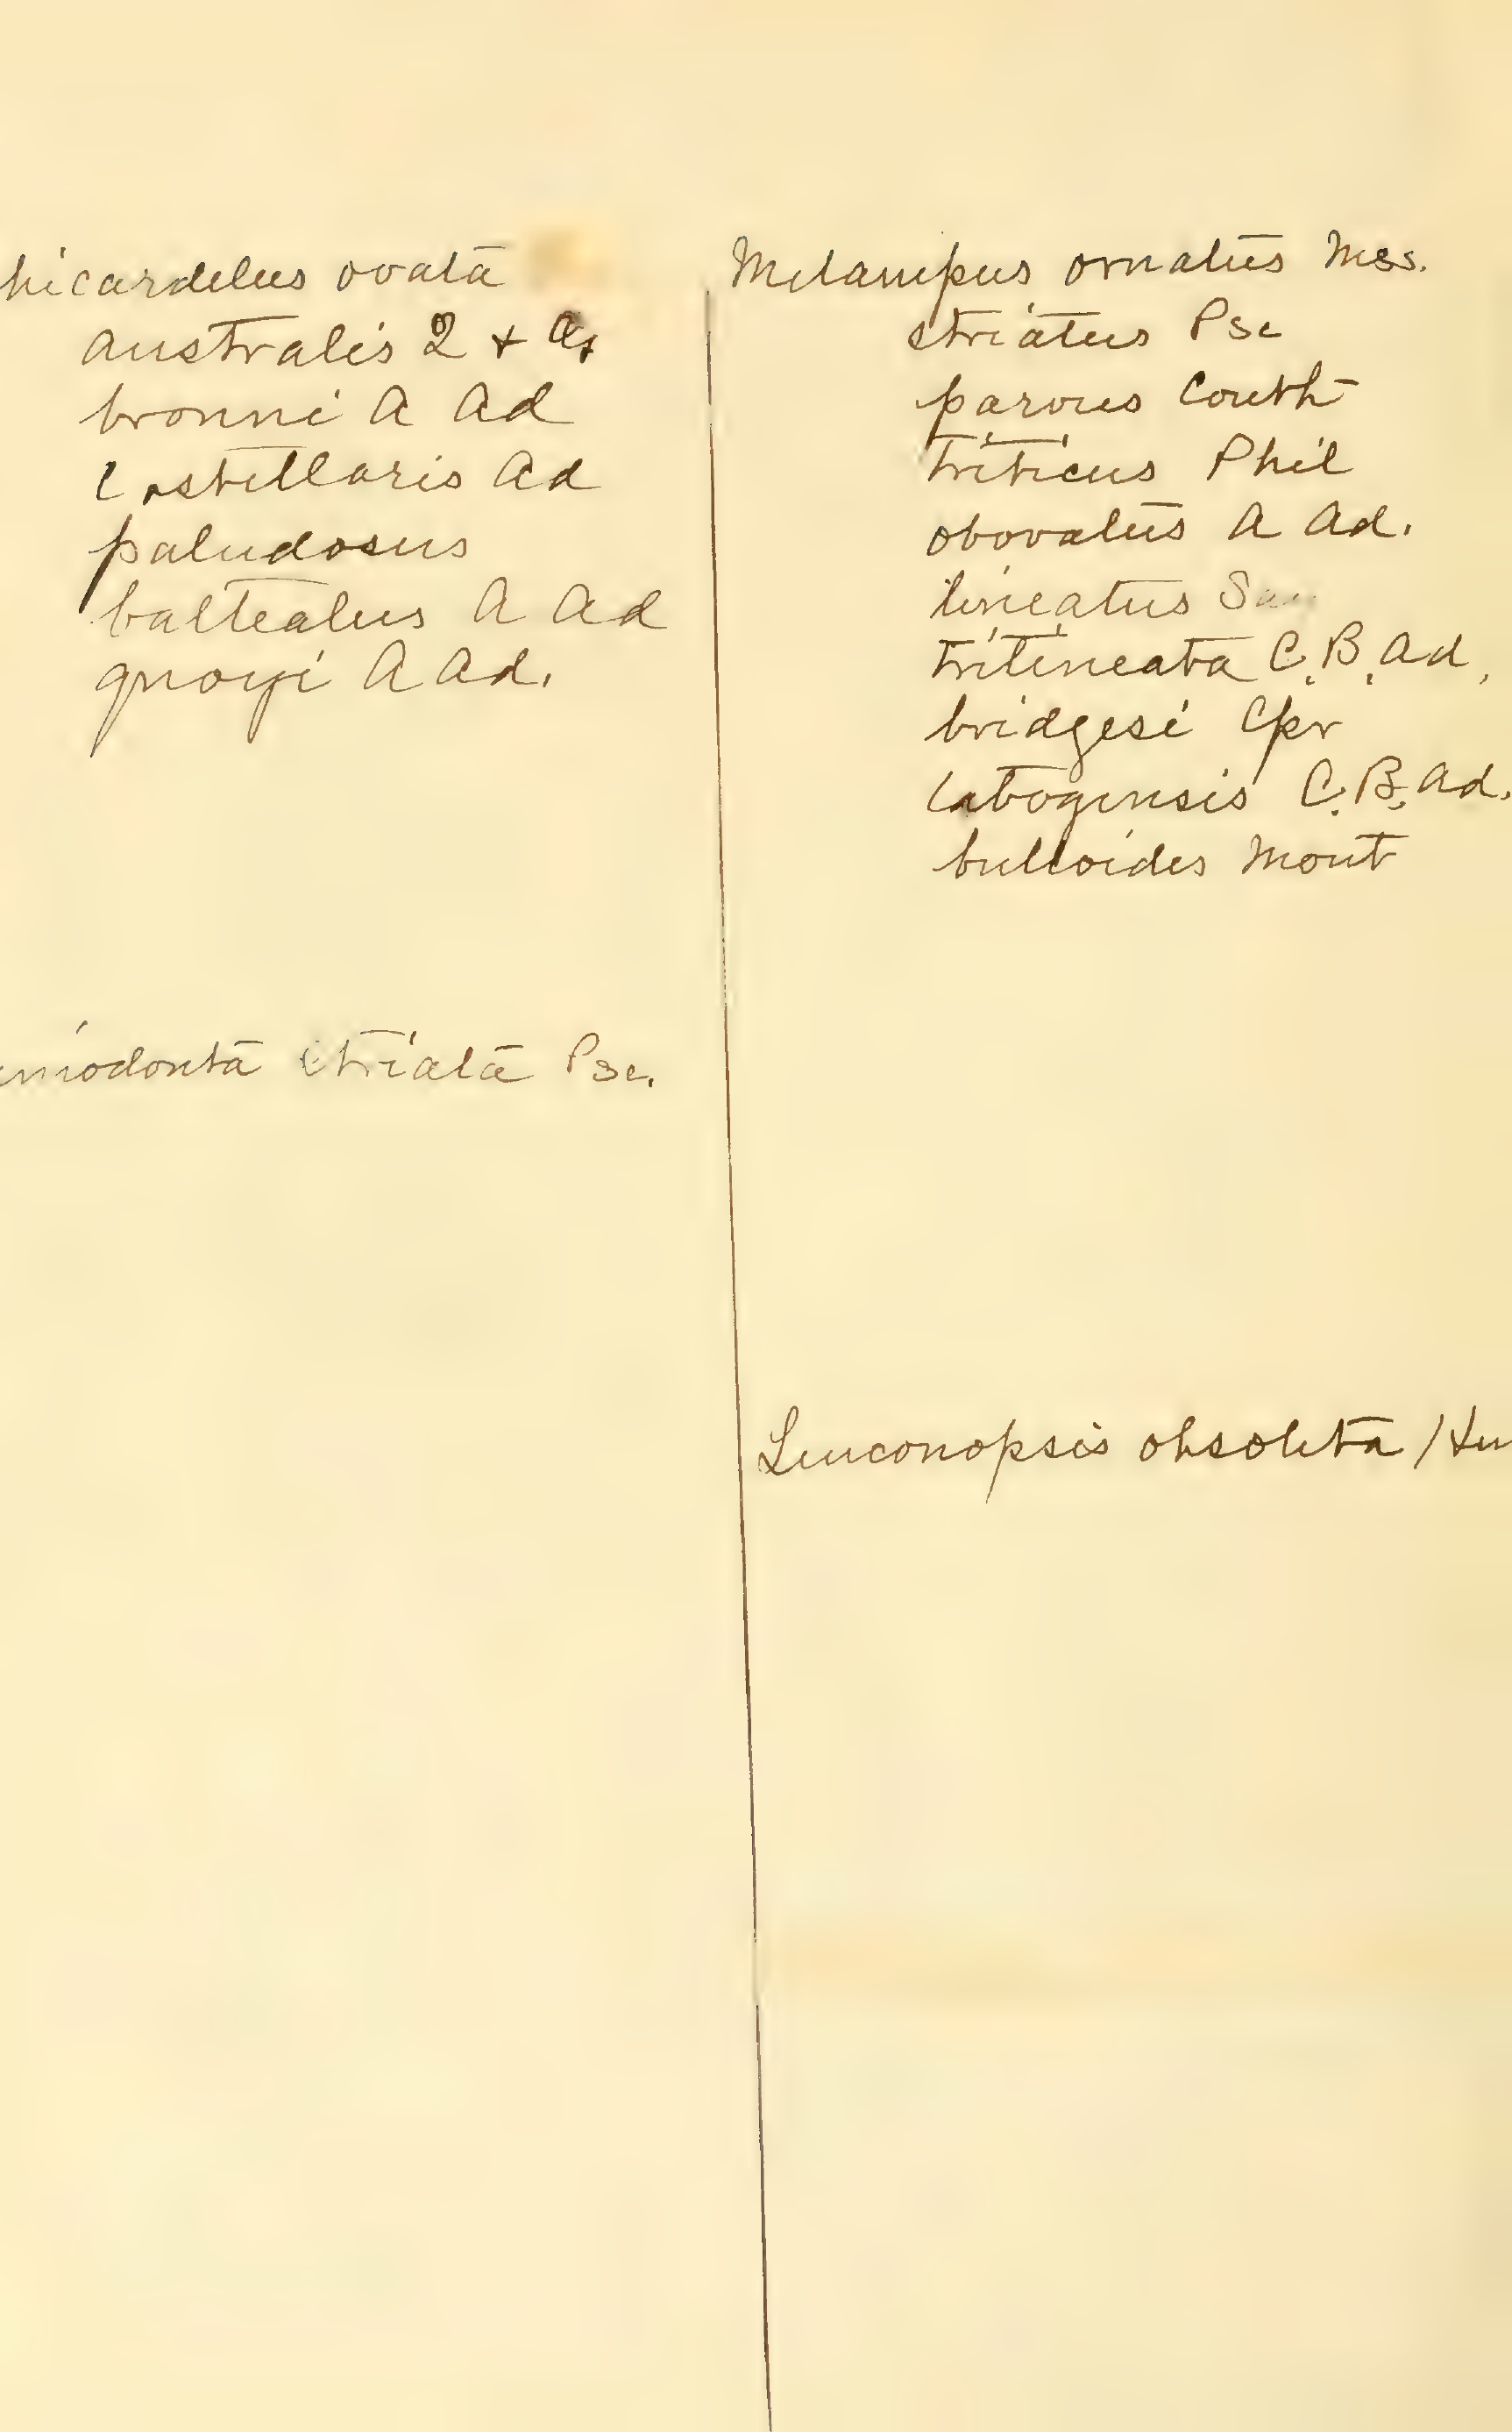 hicardelus ovata
australis Q + G
bronni A Ad
costellaris Ad
paludosus
baltealus A Ad
quoyi A Ad.
miodonta striata Pse.
Melampus ornatus Mss.
striatus Pse
parvus Couth
triticus Phil
obovatus A Ad.
lineatus Say
trilineata C.B. Ad,
bridgesi Cpr
tabogensis C.B. Ad.
bulloides Mont
Leuconopsis obsoleta Hu